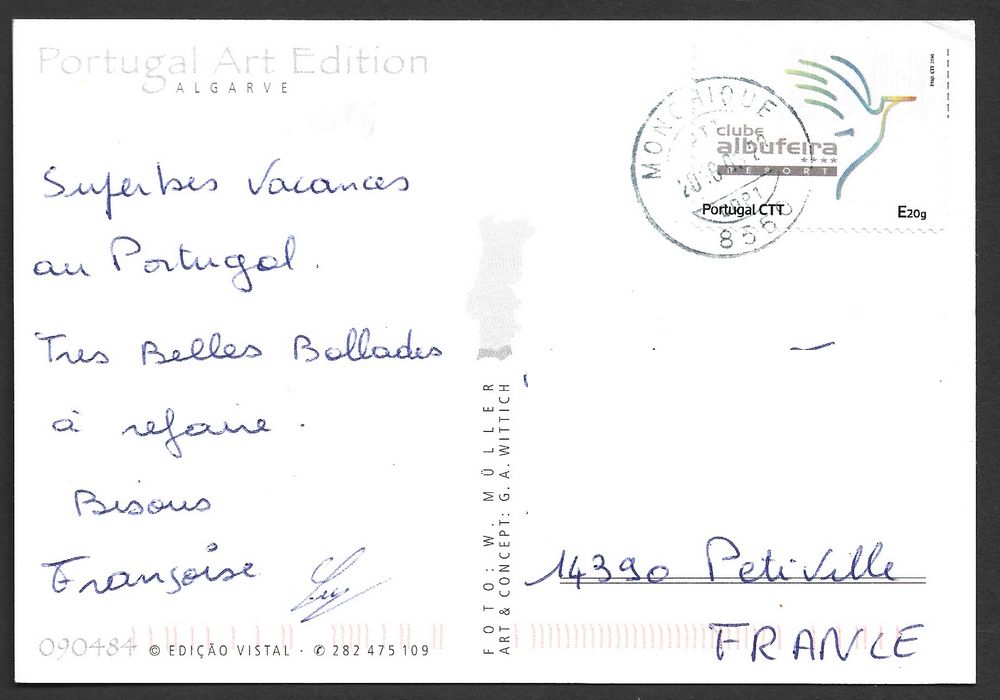 Portugal Art Edition
ALGARVE
Superbes Vacances
au Portugal.
Tres Belles Ballades
à refaire.
Bisous
Françoise
090484
© EDIÇÃO VISTAL · ✆ 282 475 109
FOTO: W. MÜLLER
ART & CONCEPT: G. A. WITTICH
MONCHIQUE
8550
clube
albufeira
****
RESORT
Portugal CTT
E20g
Imp. CTT 2016
14390 Petiville
FRANCE